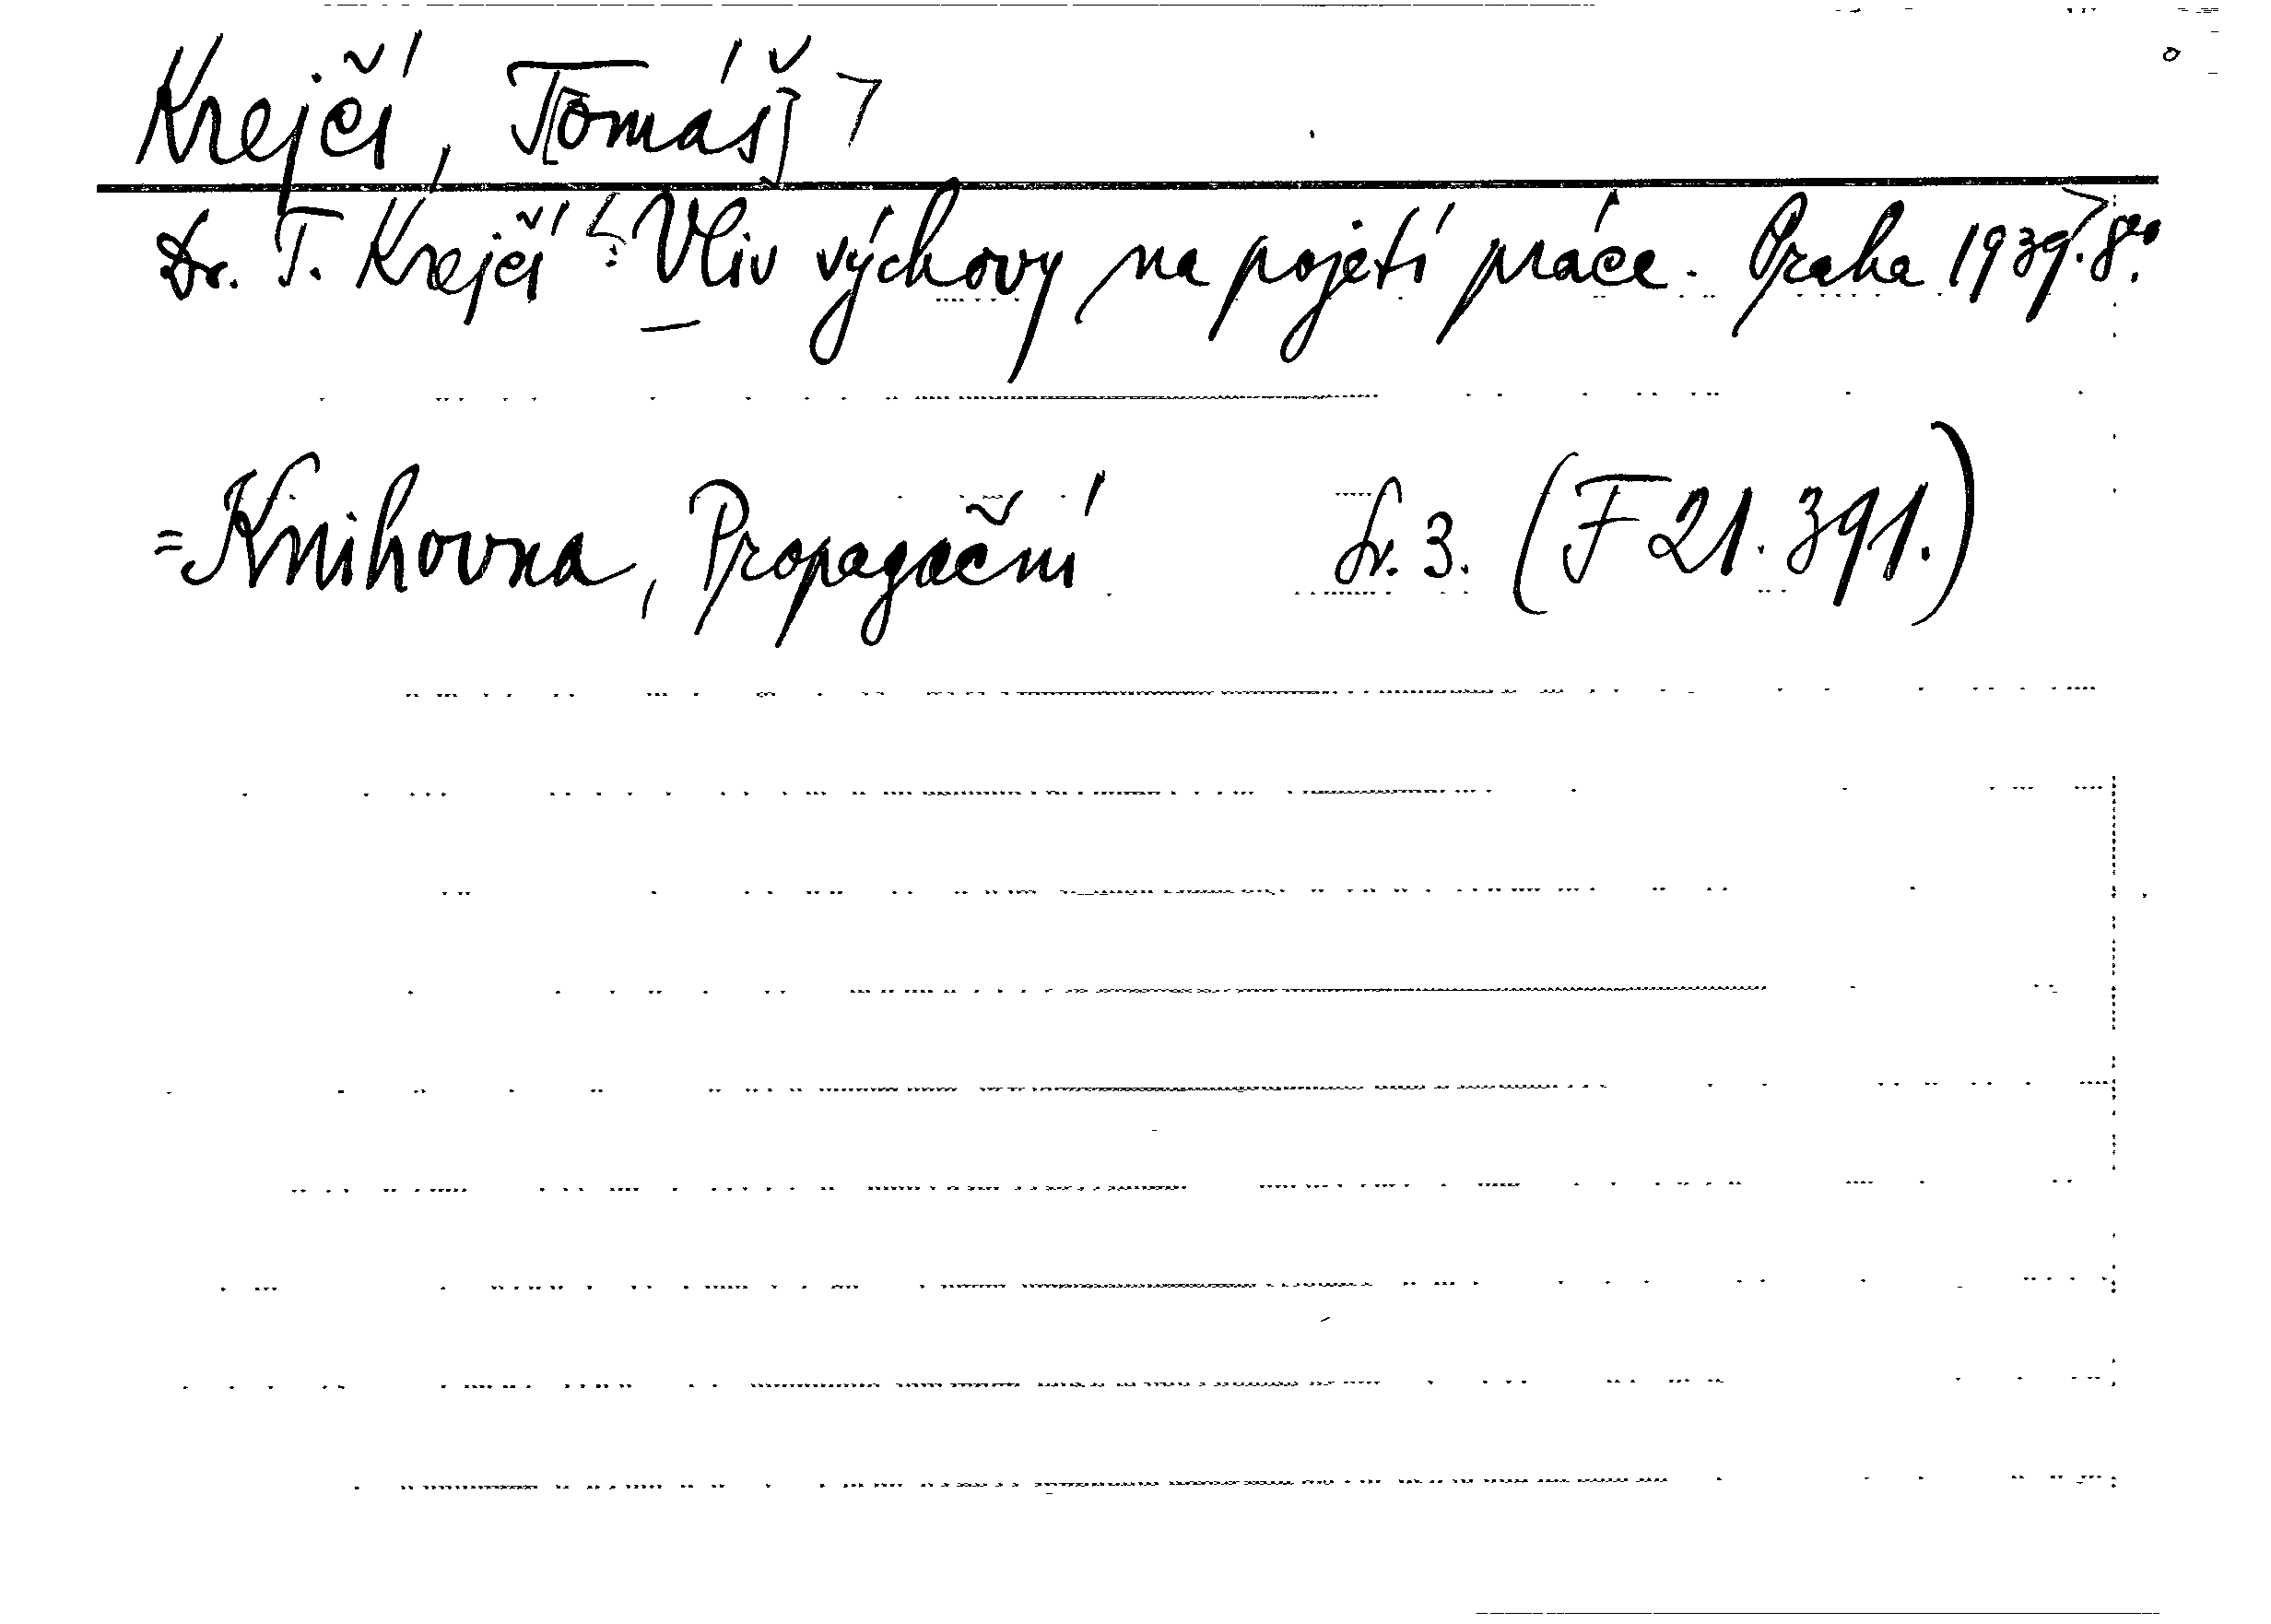 Krejčí, T[omáš]
Dr. T. Krejčí: Vliv výchovy na pojetí práce. Praha 1939. 8°.
= Knihovna, Propagační Sv. 3. (F 21.391.)